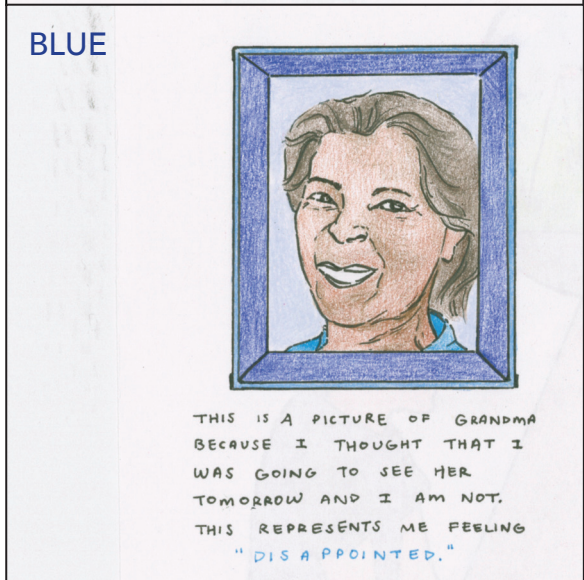 BLUE
THIS IS A PICTURE OF GRANDMA
BECAUSE I THOUGHT THAT I
WAS GOING TO SEE HER
TOMORROW AND I AM NOT.
THIS REPRESENTS ME FEELING
"DISAPPOINTED."